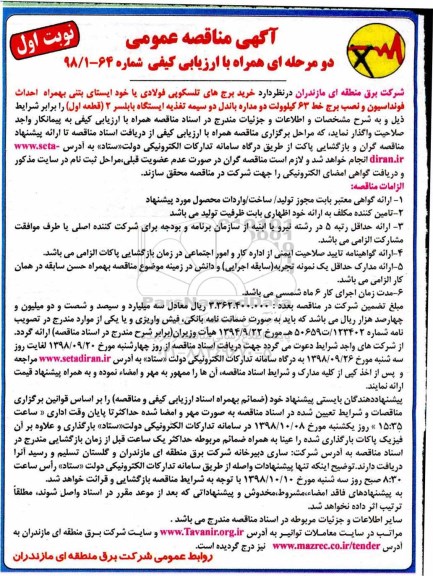 آگهی مناقصه عمومی
نوبت اول
دو مرحله ای همراه با ارزیابی کیفی شماره ۶۴-۹۸/۱
شرکت برق منطقه ای مازندران درنظردارد خرید برج های تلسکوپی فولادی یا خود ایستای بتنی بهمراه احداث
فونداسیون و نصب برج خط ۶۳ کیلوولت دو مداره باندل دو سیمه تغذیه ایستگاه بابلسر ۲ (قطعه اول) را برابر شرایط
ذیل و به شرح مشخصات و اطلاعات و جزئیات مندرج در اسناد مناقصه همراه با ارزیابی کیفی به پیمانکار واجد
صلاحیت واگذار نماید، که مراحل برگزاری مناقصه همراه با ارزیابی کیفی از دریافت اسناد مناقصه تا ارائه پیشنهاد
مناقصه گران و بازگشایی پاکت از طریق درگاه سامانه تدارکات الکترونیکی دولت«ستاد» به آدرس www.seta-
diran.ir انجام خواهد شد و لازم است مناقصه گران در صورت عدم عضویت قبلی،مراحل ثبت نام در سایت مذکور
و دریافت گواهی امضای الکترونیکی را جهت شرکت در مناقصه محقق سازند.
الزامات مناقصه:
۱- ارائه گواهی معتبر بابت مجوز تولید/ ساخت/واردات محصول مورد پیشنهاد
۲-تامین کننده مکلف به ارائه خود اظهاری بابت ظرفیت تولید می باشد
۳- ارائه حداقل رتبه ۵ در رشته نیرو یا ابنیه از سازمان برنامه و بودجه برای شرکت کننده اصلی یا طرف موافقت
مشارکت الزامی می باشد.
۴- ارائه گواهینامه تایید صلاحیت ایمنی از اداره کار و امور اجتماعی در زمان بازگشایی پاکات الزامی می باشد.
۵-ارائه مدارک حداقل یک نمونه تجربه(سابقه اجرایی) و دانش در زمینه موضوع مناقصه بهمراه حسن سابقه در همان
کار الزامی می باشد.
۶-مدت زمان اجرای کار ۶ ماه شمسی می باشد.
مبلغ تضمین شرکت در مناقصه بعدد : ۳.۳۶۲.۴۰۰.۰۰۰ ریال معادل سه میلیارد و سیصد و شصت و دو میلیون و
چهارصد هزار ریال می باشد که باید به صورت ضمانت نامه بانکی، فیش واریزی و یا یکی از موارد مندرج در تصویب
نامه شماره ۱۲۳۴۰۲/ت۵۰۶۵۹ هـ مورخ ۱۳۹۴/۹/۲۲ هیأت وزیران(برابر شرح مندرج در اسناد مناقصه) ارائه گردد.
از شرکت های واجد شرایط دعوت می گردد جهت دریافت اسناد مناقصه از روز چهارشنبه مورخ ۱۳۹۸/۰۹/۲۰ لغایت روز
سه شنبه مورخ ۱۳۹۸/۰۹/۲۶ به درگاه سامانه تدارکات الکترونیکی دولت «ستاد» به آدرس www.setadiran.ir مراجعه
و پس از اخذ کپی از کلیه مدارک و شرایط اسناد مناقصه آن ها را ممهور به مهر و امضاء نموده و به همراه پیشنهاد قیمت
ارائه نمایند.
پیشنهاددهندگان بایستی پیشنهاد خود (ضمائم بهمراه اسناد ارزیابی کیفی و مناقصه) را بر اساس قوانین برگزاری
مناقصات و شرایط تعیین شده در اسناد مناقصه به صورت مهر و امضا شده حداکثر تا پایان وقت اداری « ساعت
۱۵:۳۵ » روز یکشنبه مورخ ۱۳۹۸/۱۰/۰۸ در سامانه تدارکات الکترونیکی دولت«ستاد» بارگذاری و علاوه بر آن
فیزیک پاکات بارگذاری شده را عینا به همراه ضمائم مربوطه حداکثر یک ساعت قبل از زمان بازگشایی مندرج در
اسناد مناقصه به آدرس شرکت: ساری دبیرخانه شرکت برق منطقه ای مازندران و گلستان تسلیم و رسید آنرا
دریافت دارند.توضیح اینکه تنها پیشنهادات واصله از طریق سامانه تدارکات الکترونیکی دولت «ستاد» رأس ساعت
۸:۳۰ صبح روز سه شنبه مورخ ۱۳۹۸/۱۰/۱۰ با توجه به شرایط مناقصه بازگشایی و قرائت خواهد شد.
به پیشنهادهای فاقد امضاء،مشروط،مخدوش و پیشنهاداتی که بعد از موعد مقرر در اسناد واصل شوند، مطلقاً
ترتیب اثر داده نخواهد شد.
سایر اطلاعات و جزئیات مربوطه در اسناد مناقصه مندرج می باشد .
مراتب در سایت معاملات توانیر به آدرس www.Tavanir.org.ir و سایت شرکت برق منطقه ای مازندران به
آدرس www.mazrec.co.ir/tender نیز درج گردیده است.
روابط عمومی شرکت برق منطقه ای مازندران